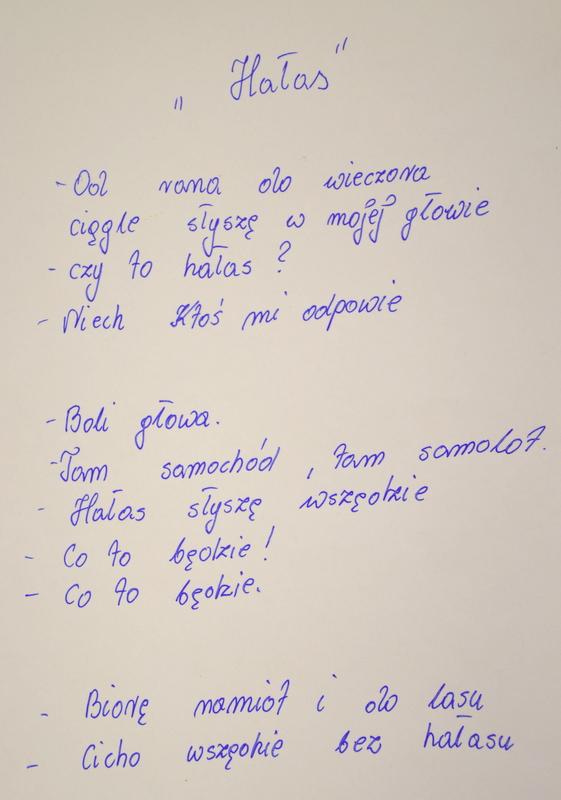 „Hałas"
- Od rana do wieczora
ciągle słyszę w mojej głowie
- czy to hałas ?
- Niech Ktoś mi odpowie
- Boli głowa.
- Tam samochód , tam samolot.
- Hałas słyszę wszędzie
- Co to będzie !
- Co to będzie.
- Biorę namiot i do lasu
- Cicho wszędzie bez hałasu